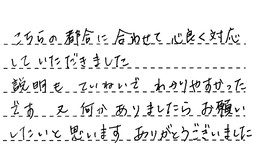 こちらの都合に合わせて心良く対応
していただきました
説明も ていねいで わかりやすかった
です 又 何か ありましたら お願い
したいと 思います ありがとうございました